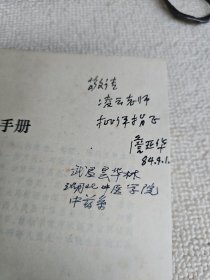 敬请
凌云老师
批评指正
詹亚华
84.9.1.
手册
武昌昙华林
湖北中医学院
中药系